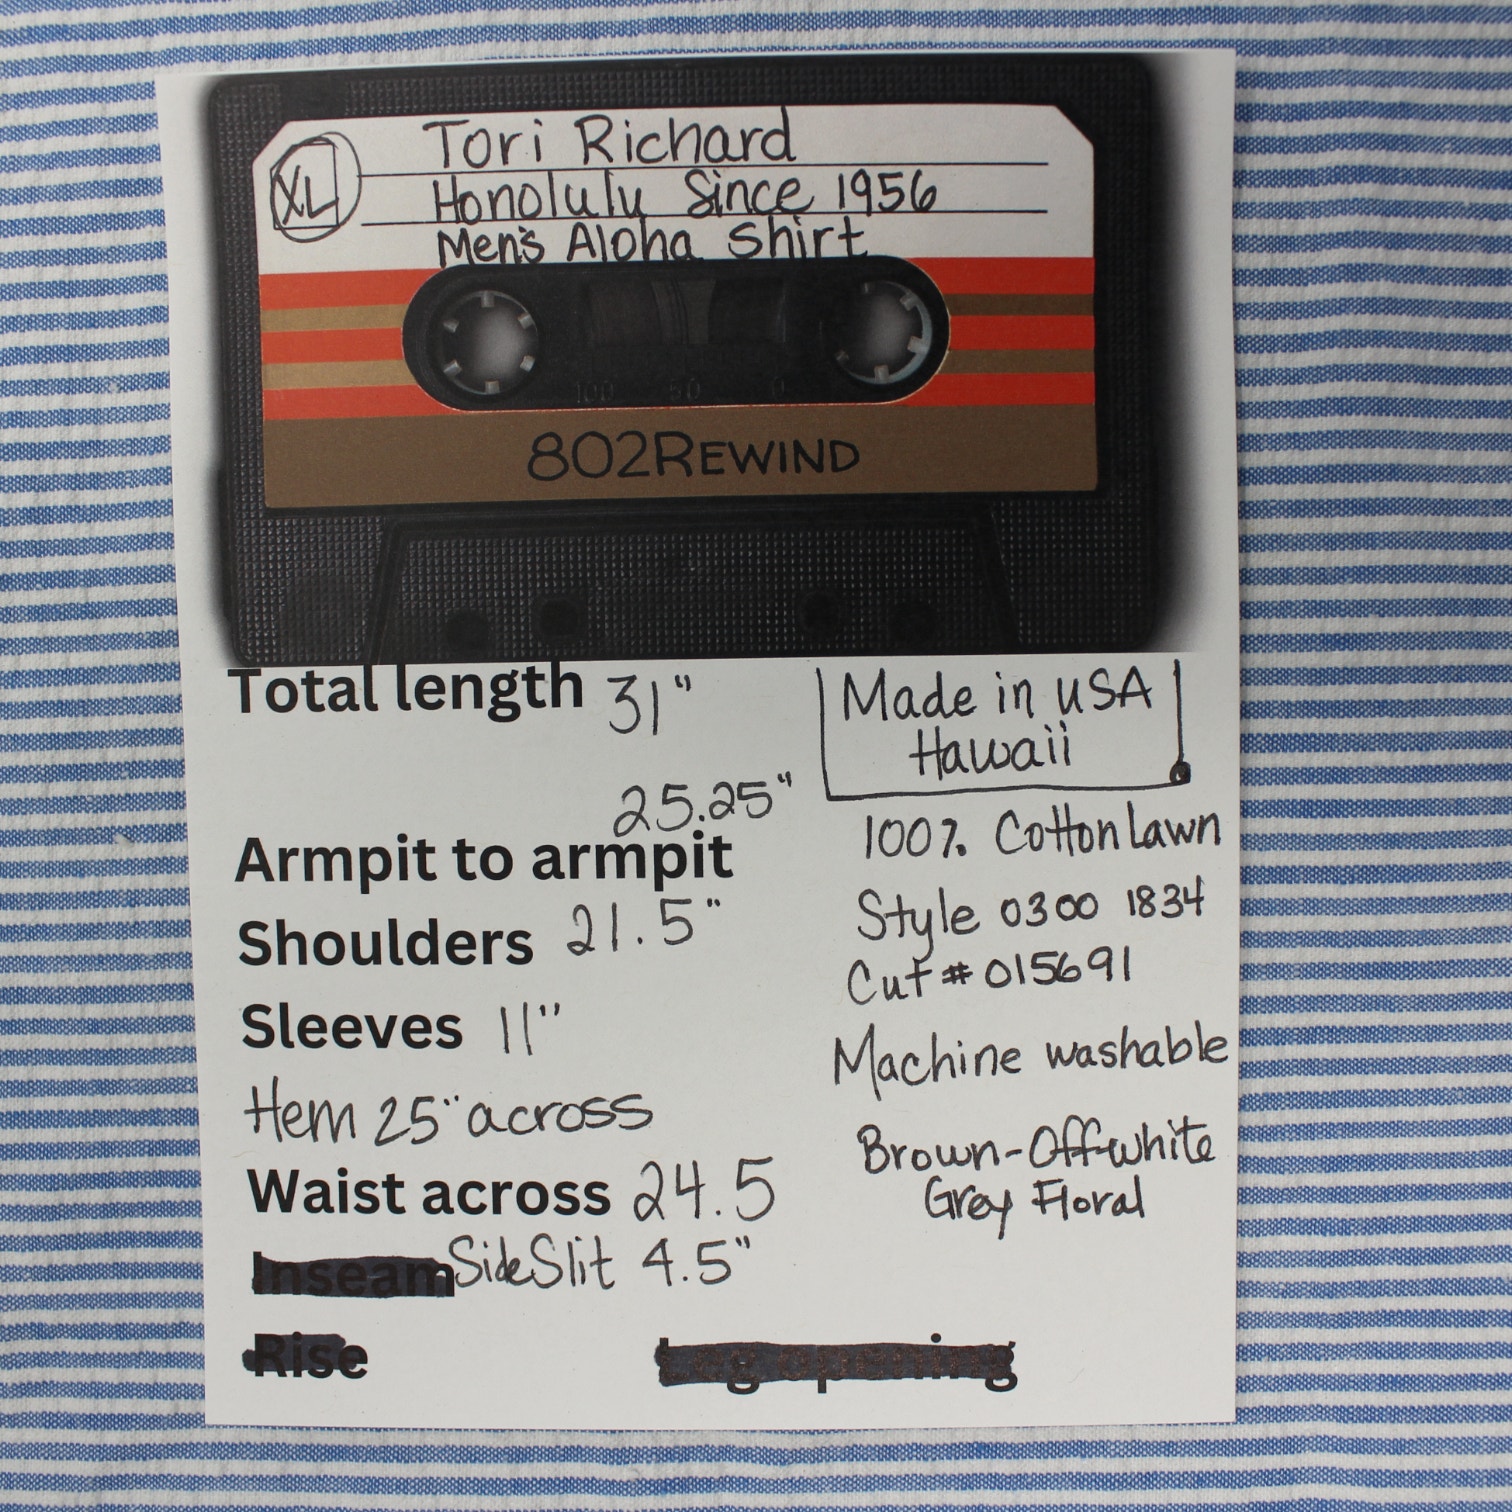 XL
Tori Richard
Honolulu Since 1956
Men's Aloha Shirt
100 50 0
802REWIND
Total length 31"
Made in USA
Hawaii
25.25"
Armpit to armpit
100% Cotton Lawn
Shoulders 21.5"
Style 0300 1834
Cut # 015691
Sleeves 11"
Machine washable
Hem 25" across
Brown-Off-white
Grey Floral
Waist across 24.5
Inseam Side Slit 4.5"
Rise
Leg opening